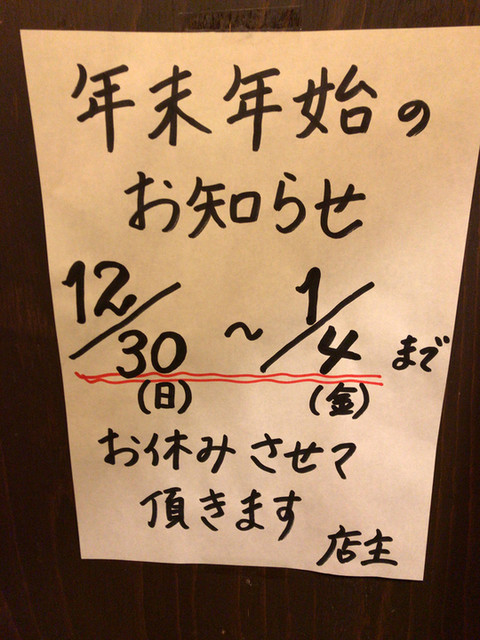 年末年始の
お知らせ
12/30 ~ 1/4 まで
(日) (金)
お休みさせて
頂きます
店主